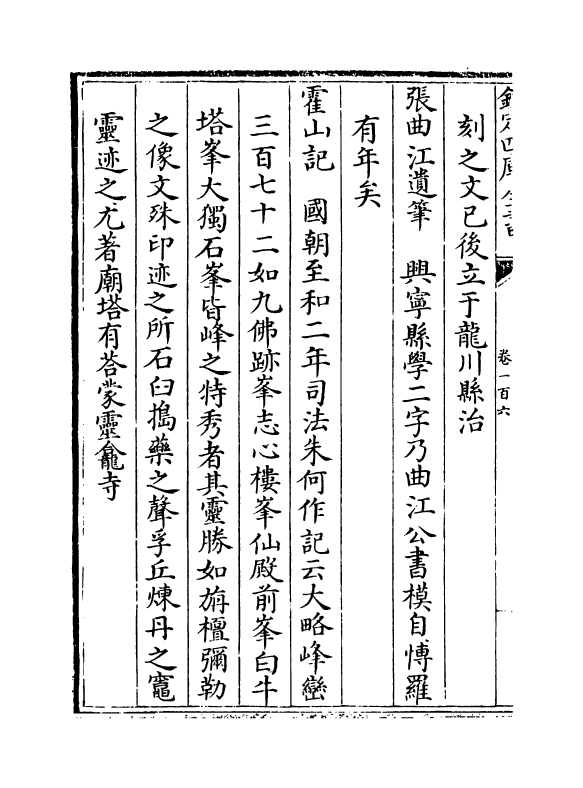 刻之文已後立于龍川縣治
張曲江遺筆　興寧縣學二字乃曲江公書模自博羅
有年矣
霍山記　國朝至和二年司法朱何作記云大略峰巒
三百七十二如九佛跡峯志心樓峯仙殿前峯白牛
塔峯大獨石峯皆峰之特秀者其靈勝如旃檀彌勒
之像文殊印迹之所石臼搗藥之聲孚丘煉丹之竈
靈迹之尤著廟塔有荅蒙靈龕寺
卷一百六